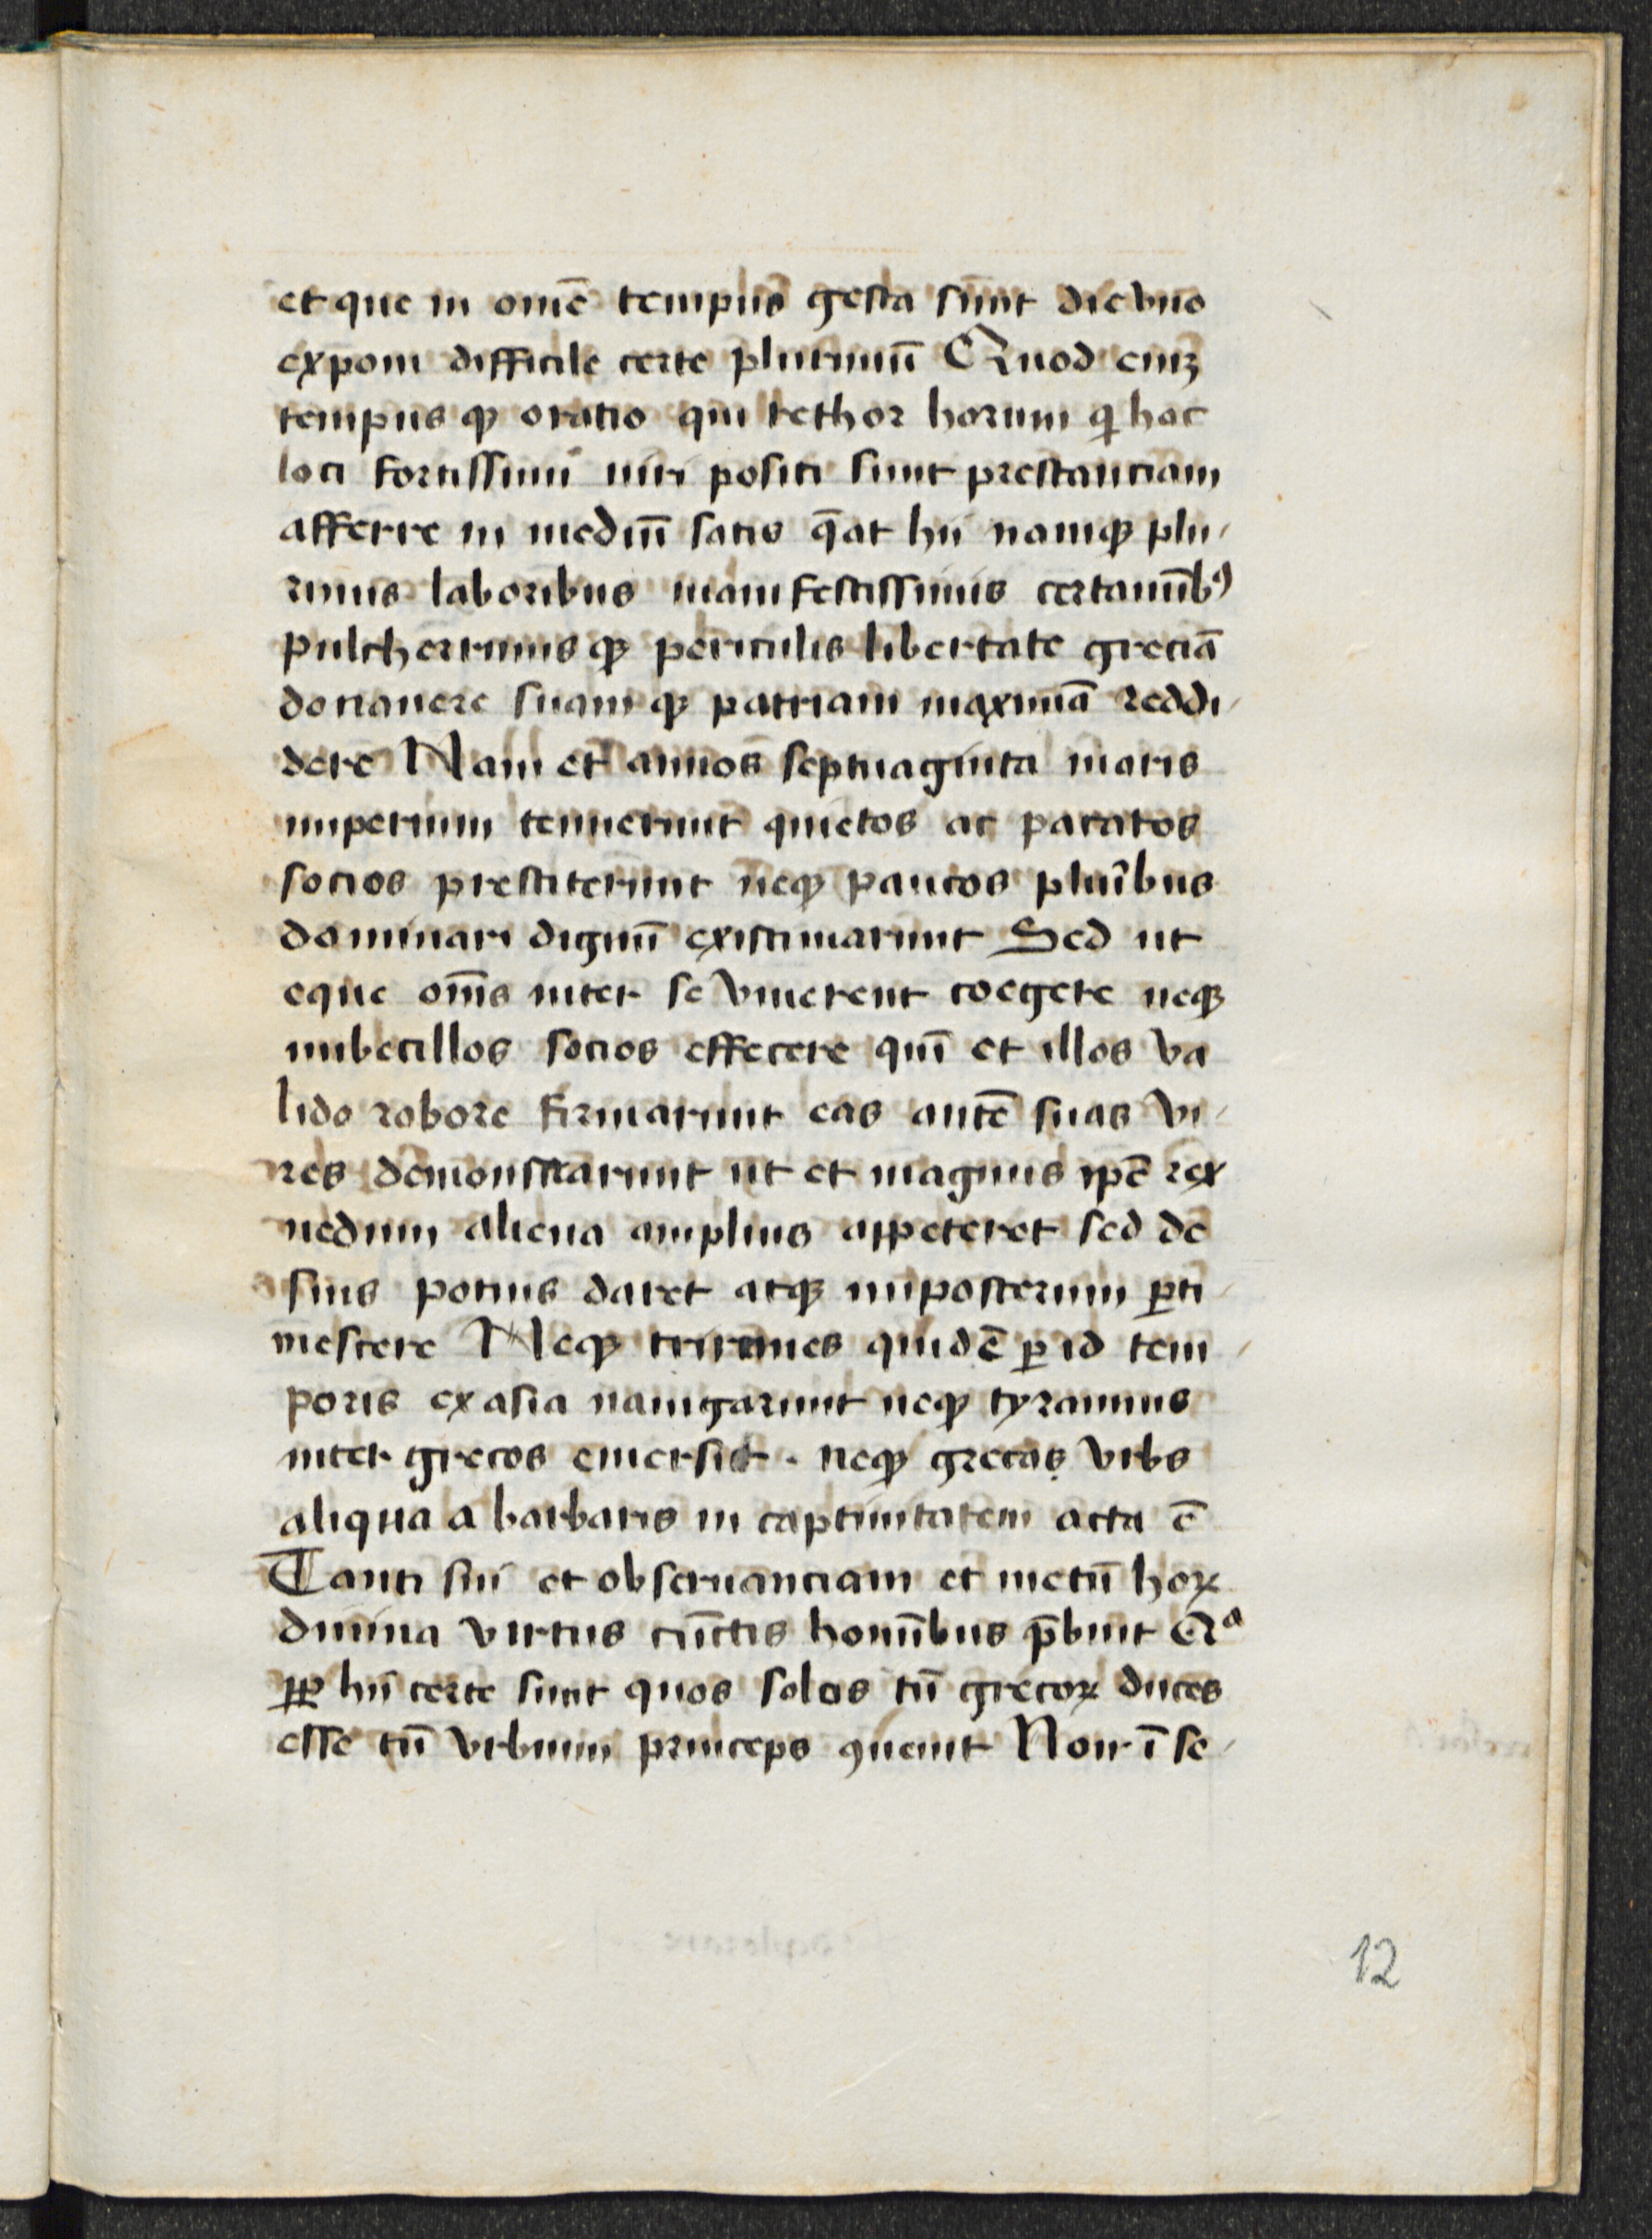 et que in omē tempus gesta sunt die vno
exponi difficile certe plurimū Quod eniꝫ
tempus qꝫ oratio qui rethor horum q hac
loci fortissimi uiri positi sunt prestantiam
afferre in mediū satis q̄at hii namqꝫ plu-
rimis laboribus manifestissimis certamībꝰ
pulcherrimisqꝫ periculis libertate greciā
donauere suamqꝫ patriam maximā reddi-
dere Nam et annos septuaginta maris
imperium tenuerunt quietos ac paratos
socios prestiterunt neqꝫ paucos plurībus
dominari dignū existimarunt Sed ut
eque om̄s inter se viuerent coegere neqꝫ
imbecillos socios effecere quī et illos va
lido robore firmarunt eas autē suas vi-
res demonstrarunt ut et magnus ip̄e rex
nedum aliena amplius appeteret sed de
suis potius daret atqꝫ imposterum ꝑti-
mescere Neqꝫ triremes quidē ꝑ id tem-
poris ex asia nauigarunt neqꝫ tyrannus
inter grecos emersit . neqꝫ grecas vrbs
aliqua a barbaris in captiuitatem acta ē
Tanti sui et obseruantiam et metū hoꝝ
diuina virtus cūctis homībus p̄buit Qᷓ
ꝓꝑ hii certe sunt quos solos tū grecoꝝ duces
esse tū vrbium princeps queunt Non ī se-
12